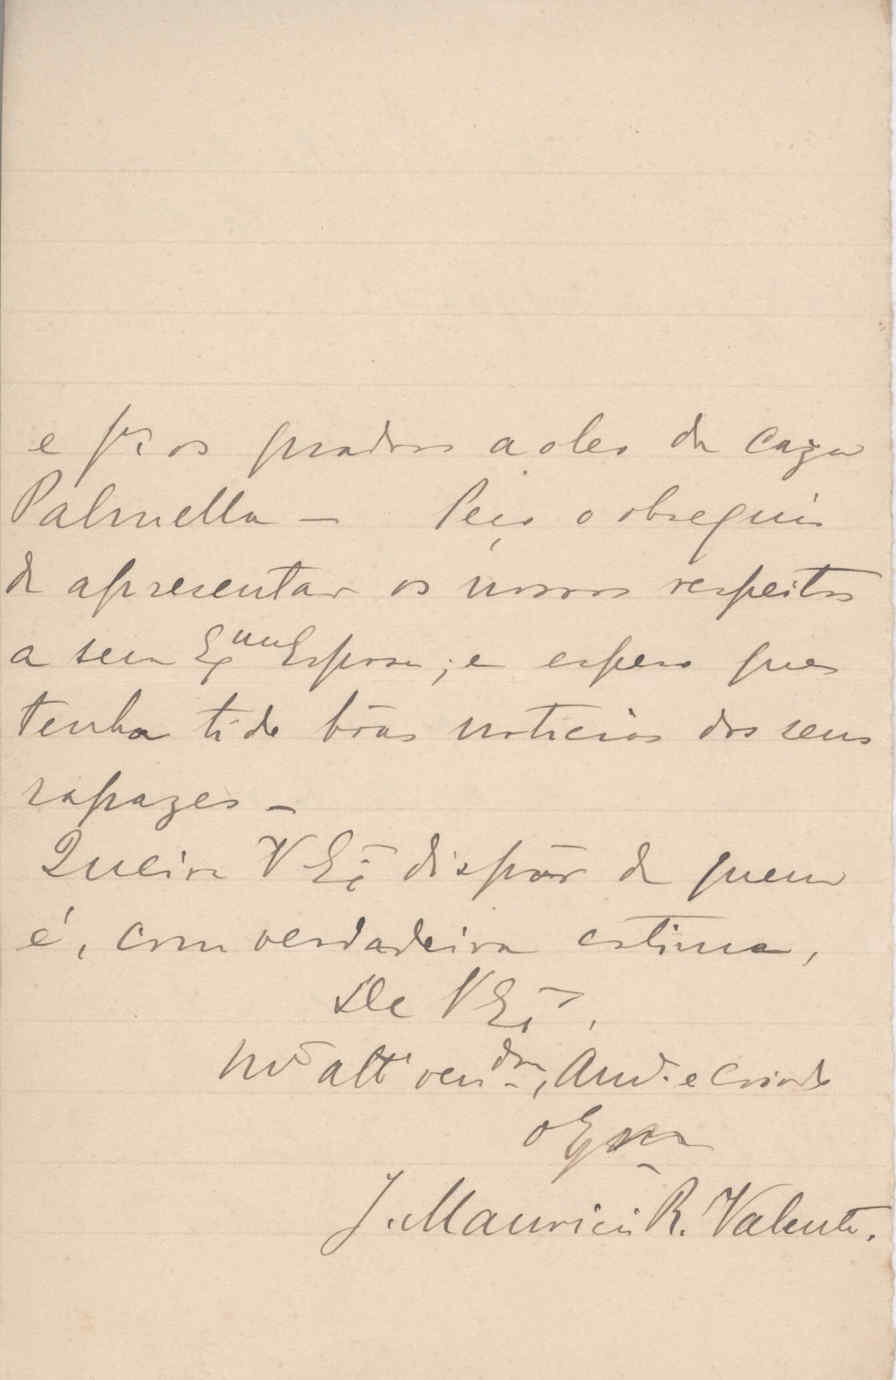 e os prados a oles da caza
Palmella — Peço o obsequio
de apresentar os nossos respeitos
a sua Exma Esposa; e espero que
tenha tido bôas noticias dos seus
rapazes —
Queira V Ex.ª dispôr de quem
é, com verdadeira estima,
De V Ex.ª,
mto attº ven.dor, Amº. e Criado
J. Mauricio R. Valente.